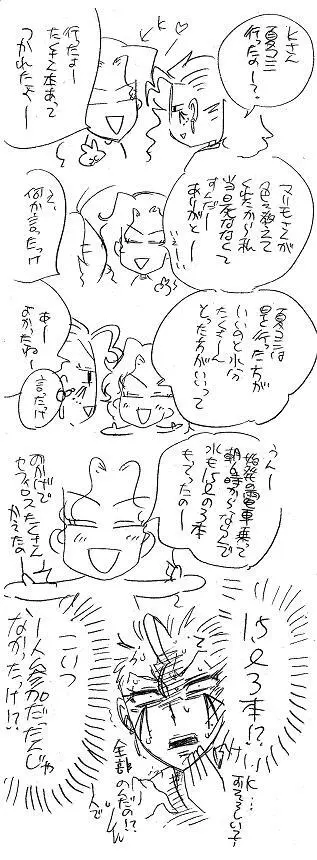 Kさん
夏コミ
行ったのー?
行たよー
たくさん本あって
つかれたよー
K
マリモさんが
色々教えて
くれたから私
当日死ななくて
すんだー
ありがとー
え、
何か言たっけ
夏コミは
早く行った方が
いいのと水分
たくさーん
とった方がいいって
あー
よかったねー
言たっけ
うんー
始発の電車乗って
朝6時からならんで
水も1.5ℓの3本
もってったのー
おかげで
セフィロスたくさん
かえたの
1.5ℓ
3本!?
K…
恐ろしい子!
こいつ
一人参加だったんじゃ
なかたっけ!?
全部
のんだの!?